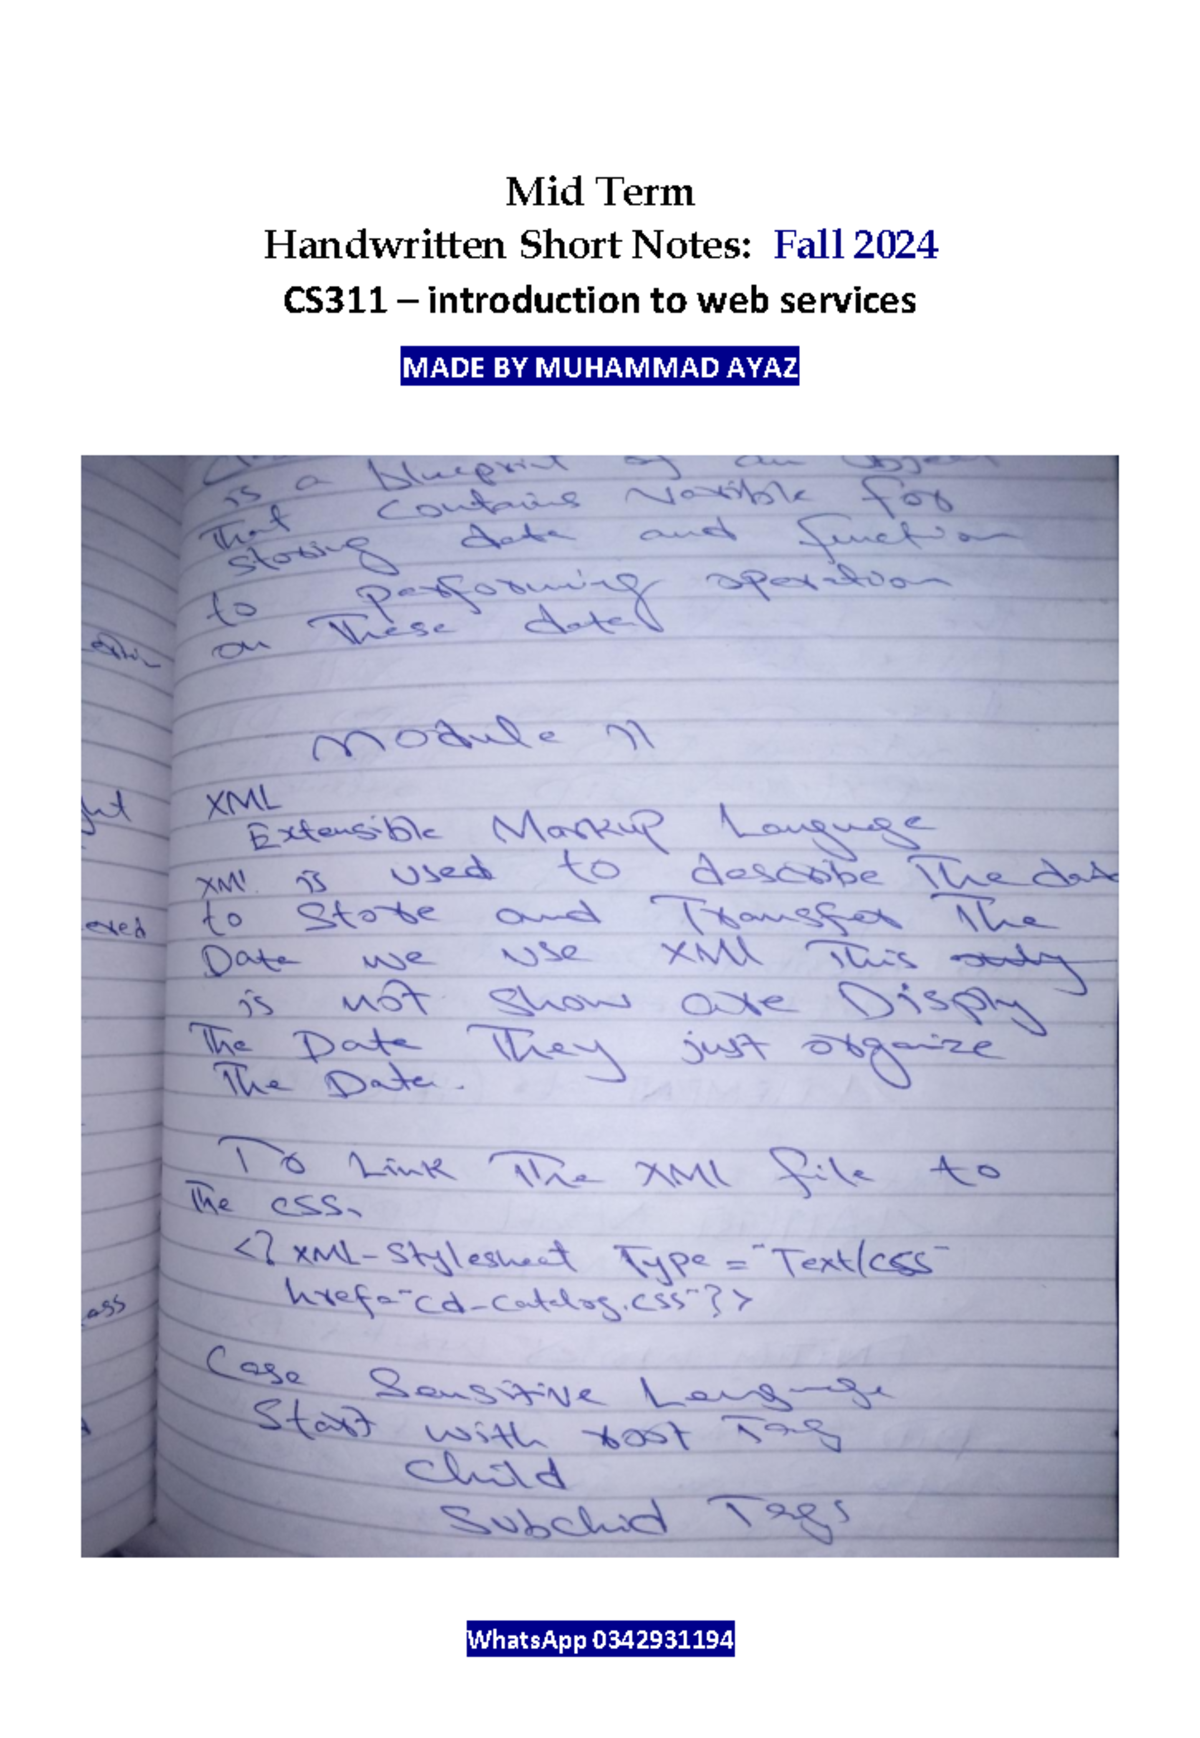 Mid Term
Handwritten Short Notes: Fall 2024
CS311 – introduction to web services
MADE BY MUHAMMAD AYAZ
is a blueprint of an object
that contains varible for
storing data and function
to performing operation
on These data
Module 11
XML
Extensible Markup Language
XML is used to describe The data
to Store and Transfer The
Data we use XML This only
is not Show are Disply
The Data They just organize
The Data.
To Link The XML file to
The CSS.
<? XML-Stylesheet Type = "Text/css"
href="cd-catalog.css"?>
Case Sensitive Language
Start with root Tag
Child
Subchid Tags
ered
ass
WhatsApp 0342931194